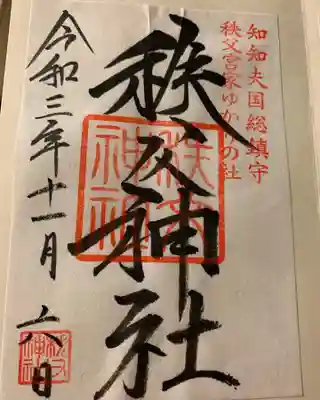 知知夫国総鎮守
秩父宮家ゆかりの社
秩父神社
秩父
神社
令和三年十一月六日
秩父
神社